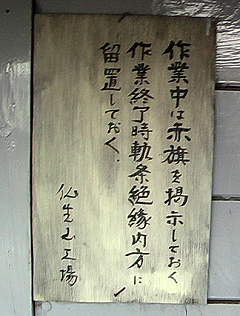 作業中は赤旗を掲示しておく
作業終了時軌条絶縁内方に
留置しておく.
仏生山工場